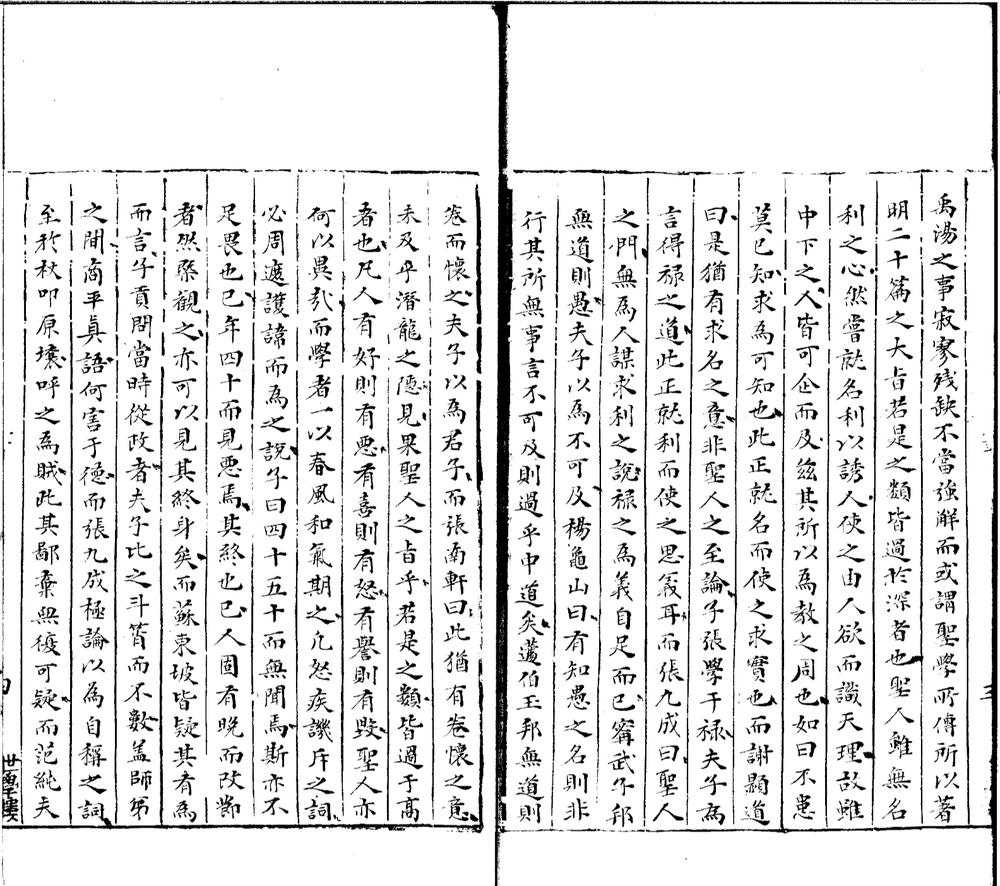 禹湯之事寂寥殘缺不當強解而或謂聖學所傳所以著
明二十篇之大旨若是之類皆過於深者也聖人雖無名
利之心然嘗就名利以誘人使之由人欲而識天理故雖
中下之人皆可企而及茲其所以為教之周也如曰不患
莫己知求為可知也此正就名而使之求實也而謝顯道
曰是猶有求名之意非聖人之至論子張學干祿夫子為
言得祿之道此正就利而使之思義耳而張九成曰聖人
之門無為人謀求利之說祿之為義自足而已寗武子邦
無道則愚夫子以為不可及楊龜山曰有知愚之名則非
行其所無事言不可及則過乎中道矣蘧伯玉邦無道則
卷而懷之夫子以為君子而張南軒曰此猶有卷懷之意
未及乎潛龍之隱見果聖人之旨乎若是之類皆過于高
者也凡人有好則有惡有喜則有怒有譽則有毀聖人亦
何以異哉而學者一以春風和氣期之凢怒疾譏斥之詞
必周遮護諱而為之說子曰四十五十而無聞焉斯亦不
足畏也已年四十而見惡焉其終也已人固有晚而改節
者然槩觀之亦可以見其終身矣而蘇東坡皆疑其有為
而言子貢問當時從政者夫子比之斗筲而不數盖師弟
之間商平真語何害于德而張九成極論以為自稱之詞
至於秋叩原壤呼之為賊此其鄙棄無復可疑而范純夫